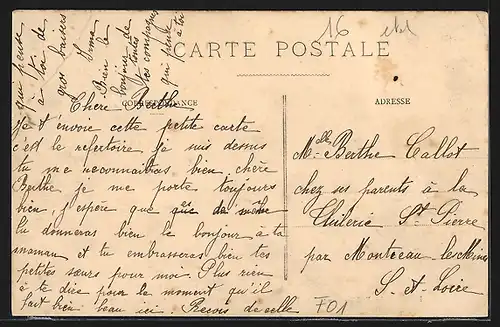 16
CARTE POSTALE
CORRESPONDANCE
ADRESSE
Chère Berthe
Je t'envoie cette petite carte
c'est le refertoire je suis dessus
tu me reconnaitras bien, chère
Berthe je me porte toujours
bien, j'espère que de même
tu donneras bien le bonjour à ta
maman et tu embrasseras bien tes
petites sœurs pour moi Plus rien
à te dire pour le moment qu'il
fait bien beau ici Reçois de celle
qui pense
à toi de
gros baisers
Irma
Bien le
bonjour de
toutes
tes compagnes
qui pense
à toi
Melle Berthe Callot
chez ses parents à la
Thuilerie St Pierre
par Montceau les Mines
S. et Loire
F01